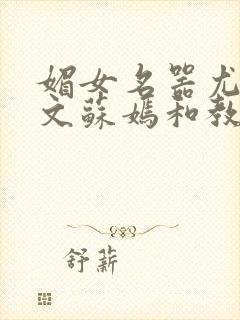 媚女名器尤
文蘇媽和教
舒薪